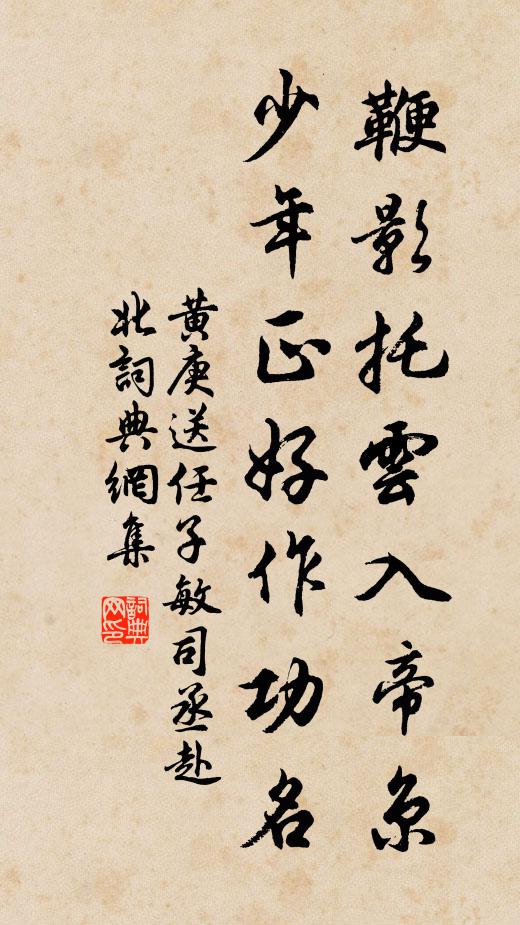 鞭影托雲入帝京
少年正好作功名
黃庚送任子敏司丞赴
北詞典網集
詞典网印